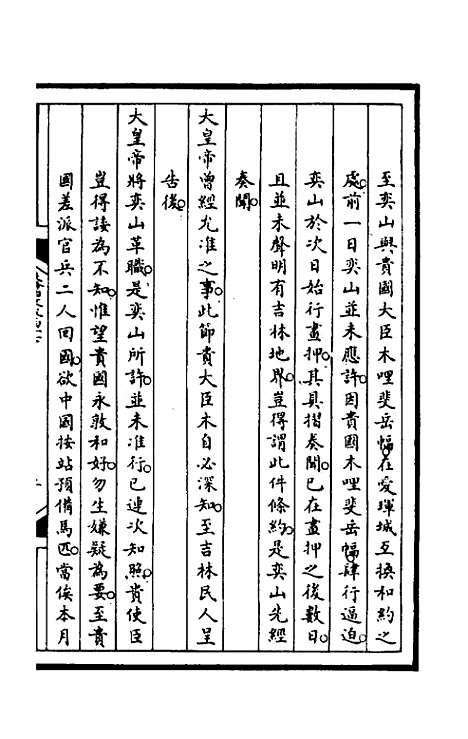 至奕山與貴國大臣木哩斐岳幅在愛琿城互換和約之
處前一日奕山並未應許因貴國木哩斐岳幅肆行逼迫
奕山於次日始行畫押其具摺奏聞已在畫押之後數日
且並未聲明有吉林地界豈得謂此件條約是奕山先經
奏聞
大皇帝曾經允准之事此節貴大臣木自必深知至吉林民人呈
告後
大皇帝將奕山革職是奕山所許並未准行已連次知照貴使臣
豈得諉為不知惟望貴國永敦和好勿生嫌疑為要至貴
國差派官兵二人回國欲中國按站預備馬匹當俟本月